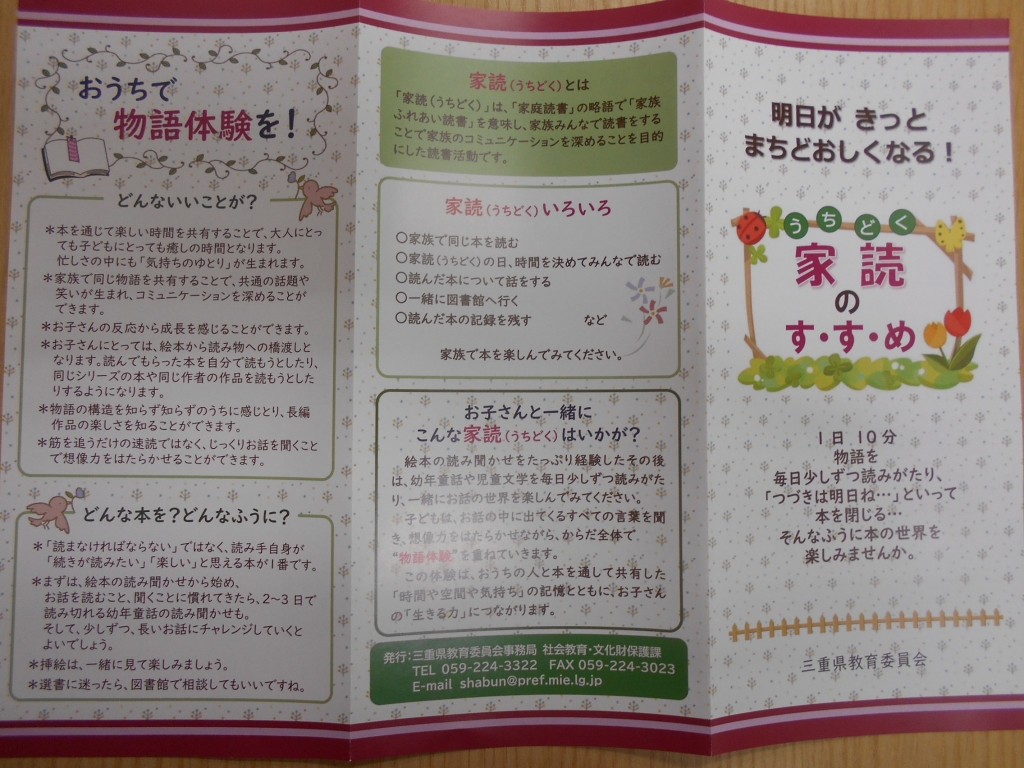 おうちで
物語体験を！
どんないいことが？
＊本を通じて楽しい時間を共有することで、大人にとっ
ても子どもにとっても癒しの時間となります。
忙しさの中にも「気持ちのゆとり」が生まれます。
＊家族で同じ物語を共有することで、共通の話題や
笑いが生まれ、コミュニケーションを深めることが
できます。
＊お子さんの反応から成長を感じることができます。
＊お子さんにとっては、絵本から読み物への橋渡しと
なります。読んでもらった本を自分で読もうとしたり、
同じシリーズの本や同じ作者の作品を読もうとした
りするようになります。
＊物語の構造を知らず知らずのうちに感じとり、長編
作品の楽しさを知ることができます。
＊筋を追うだけの速読ではなく、じっくりお話を聞くこと
で想像力をはたらかせることができます。
どんな本を？どんなふうに？
＊「読まなければならない」ではなく、読み手自身が
「続きが読みたい」「楽しい」と思える本が1番です。
＊まずは、絵本の読み聞かせから始め、
お話を読むこと、聞くことに慣れてきたら、2～3日で
読み切れる幼年童話の読み聞かせも。
そして、少しずつ、長いお話にチャレンジしていくと
よいでしょう。
＊挿絵は、一緒に見て楽しみましょう。
＊選書に迷ったら、図書館で相談してもいいですね。
家読（うちどく）とは
「家読（うちどく）」は、「家庭読書」の略語で「家族
ふれあい読書」を意味し、家族みんなで読書をする
ことで家族のコミュニケーションを深めることを目的
にした読書活動です。
家読（うちどく）いろいろ
○家族で同じ本を読む
○家読（うちどく）の日、時間を決めてみんなで読む
○読んだ本について話をする
○一緒に図書館へ行く
○読んだ本の記録を残す　など
家族で本を楽しんでみてください。
お子さんと一緒に
こんな家読（うちどく）はいかが？
絵本の読み聞かせをたっぷり経験したその後
は、幼年童話や児童文学を毎日少しずつ読みがた
り、一緒にお話の世界を楽しんでみてください。
子どもは、お話の中に出てくるすべての言葉を聞
き、想像力をはたらかせながら、からだ全体で
“物語体験”を重ねていきます。
この体験は、おうちの人と本を通して共有した
「時間や空間や気持ち」の記憶とともに、お子さん
の「生きる力」につながります。
発行：三重県教育委員会事務局 社会教育・文化財保護課
TEL 059-224-3322 FAX 059-224-3023
E-mail shabun@pref.mie.lg.jp
明日が きっと
まちどおしくなる！
うちどく
家読
の
す・す・め
1日 10分
物語を
毎日少しずつ読みがたり、
「つづきは明日ね…」といって
本を閉じる…
そんなふうに本の世界を
楽しみませんか。
三重県教育委員会